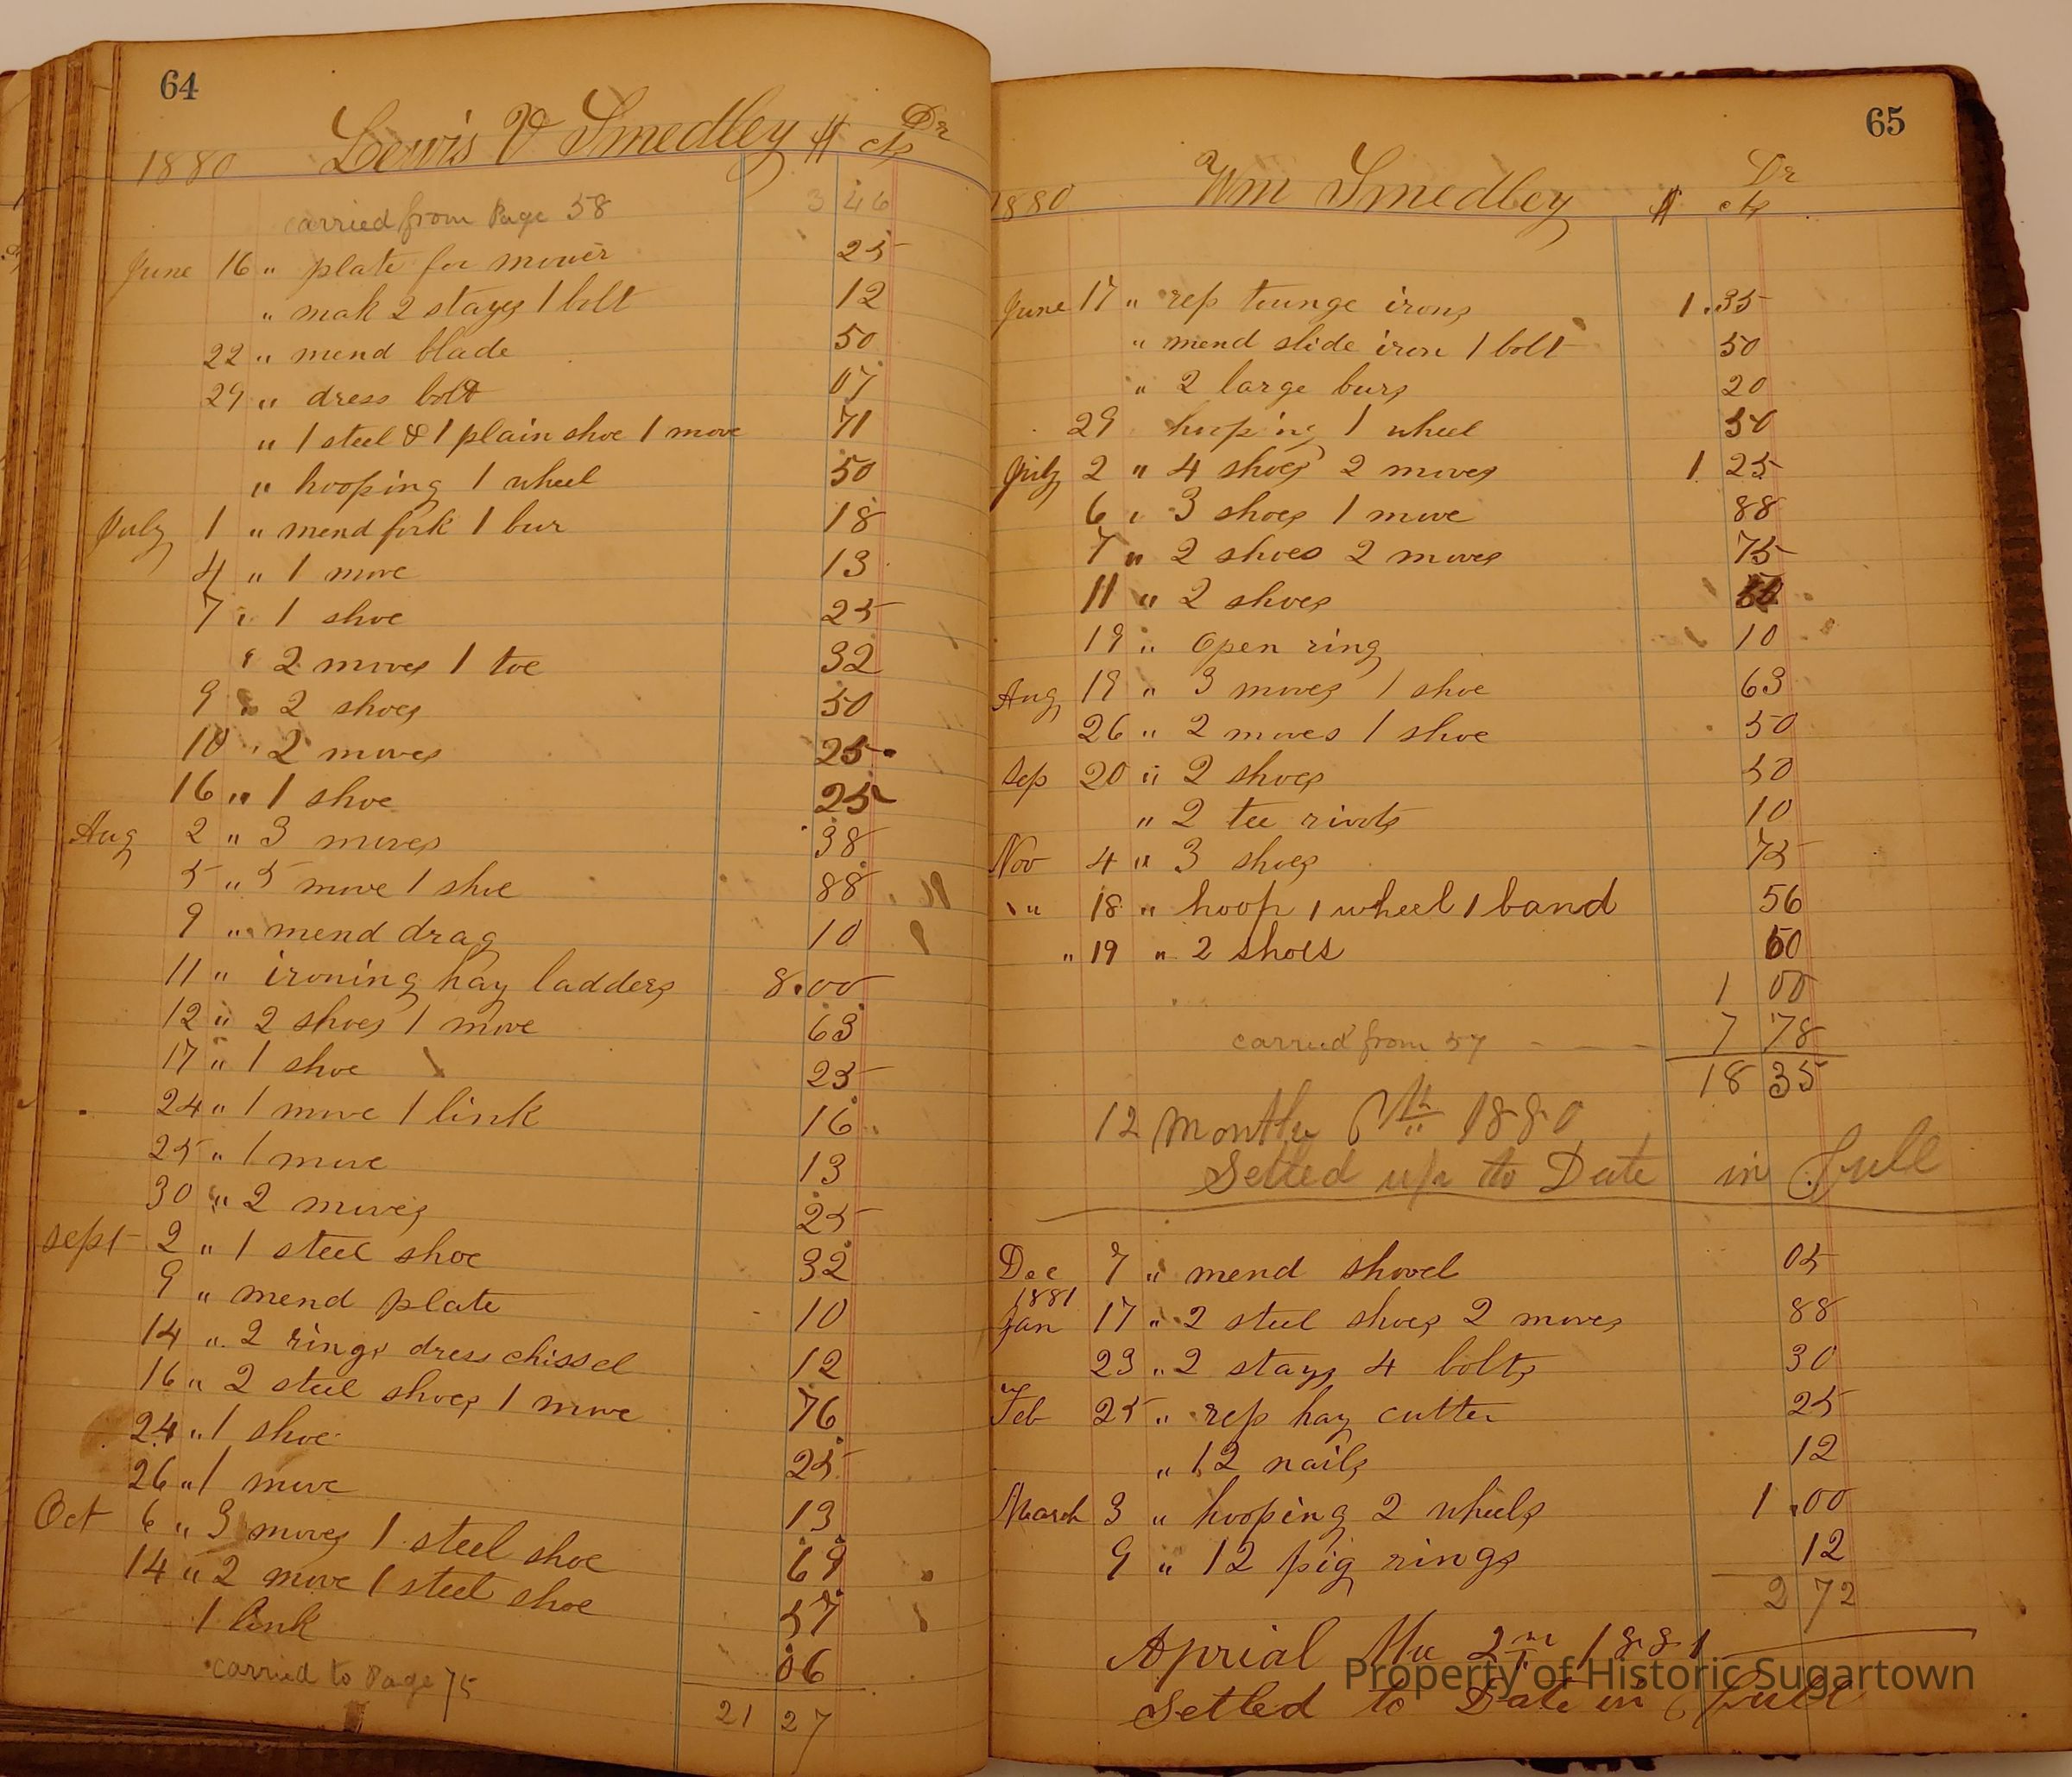 64
Lewis V Smedley $ cts Dr
1880
carried from Page 58 3 46
June 16 " plate for mower 25
" mak 2 stays 1 bolt 12
22 " mend blade 50
29 " dress bolt 07
" 1 steel & 1 plain shoe 1 move 71
" hooping 1 wheel 50
July 1 " mend fork 1 bur 18
4 " 1 move 13
7 " 1 shoe 25
" 2 moves 1 toe 32
9 " 2 shoes 50
10 " 2 moves 25
16 " 1 shoe 25
Aug 2 " 3 moves 38
5 " 5 move 1 shoe 88
9 " mend drag 10
11 " ironing hay ladders 8.00
12 " 2 shoes 1 move 63
17 " 1 shoe 25
24 " 1 move 1 link 16
25 " 1 move 13
30 " 2 moves 25
Sept 2 " 1 steel shoe 32
9 " mend plate 10
14 " 2 rings dress chissel 12
16 " 2 steel shoes 1 move 76
24 " 1 shoe 25
26 " 1 move 13
Oct 6 " 3 moves 1 steel shoe 69
14 " 2 move 1 steel shoe 57
1 link 06
carried to Page 75
21 27
65
1880 Wm Smedley $ cts Dr
June 17 " rep tounge irons 1.35
" mend slide iron 1 bolt 50
" 2 large burs 20
29 hooping 1 wheel 50
July 2 " 4 shoes 2 moves 1 25
6 " 3 shoes 1 move 88
7 " 2 shoes 2 moves 75
11 " 2 shoes 50
19 " open ring 10
Aug 19 " 3 moves 1 shoe 63
26 " 2 moves 1 shoe 50
Sep 20 " 2 shoes 50
" 2 tee rivots 10
Nov 4 " 3 shoes 75
" 18 " hoop 1 wheel 1 band 56
" 19 " 2 shoes 50
1 00
carried from 57 - - - 7 78
18 35
12 month 6th 1880
Setled up to Date in full
Dec 7 " mend shovel 05
1881
Jan 17 " 2 steel shoes 2 moves 88
23 " 2 stays 4 bolts 30
Feb 25 " rep hay cutter 25
" 12 nails 12
March 3 " hooping 2 wheels 1.00
9 " 12 pig rings 12
2 72
Aprial the 2nd 1881
Property of Historic Sugartown
Setled to Date in full